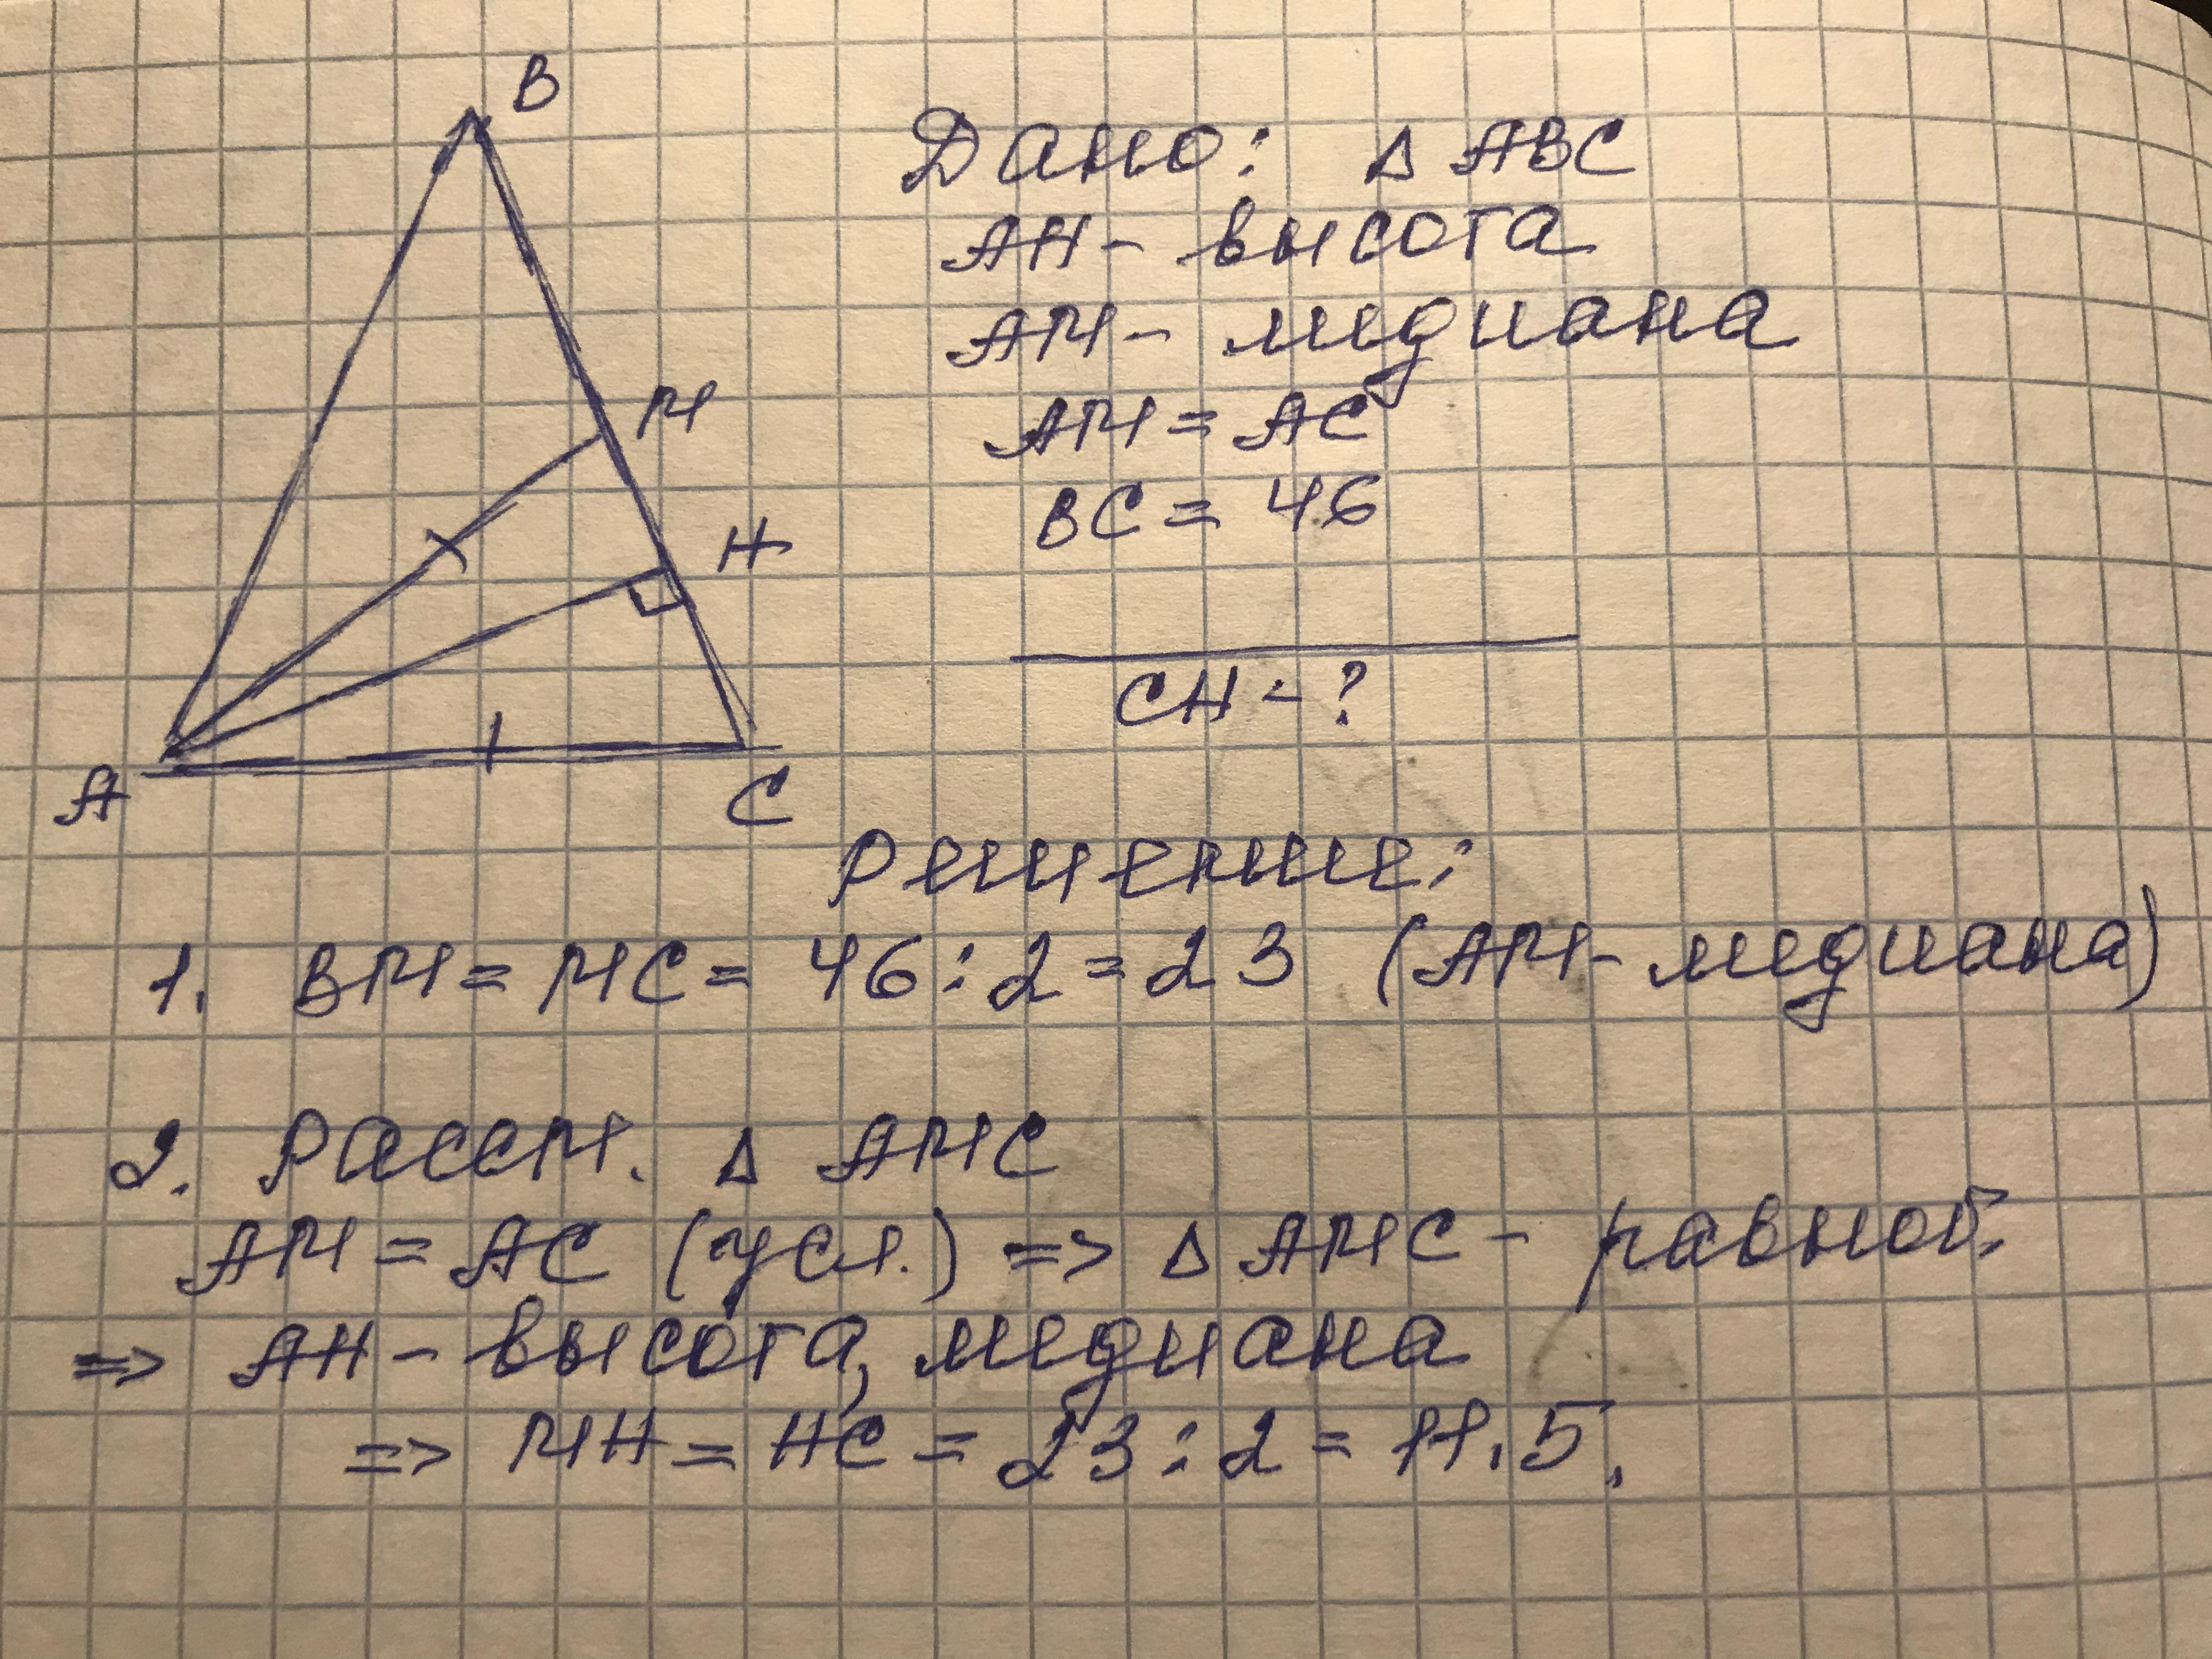 B
M
H
A
C
Дано: Δ ABC
AH - высота
AM - медиана
AM = AC
BC = 46
CH - ?
Решение:
1. BM = MC = 46 : 2 = 23 (AM - медиана)
2. Рассм. Δ AMC
AM = AC (усл.) => Δ AMC - равноб.
=> AH - высота, медиана
=> MH = HC = 23 : 2 = 11,5.